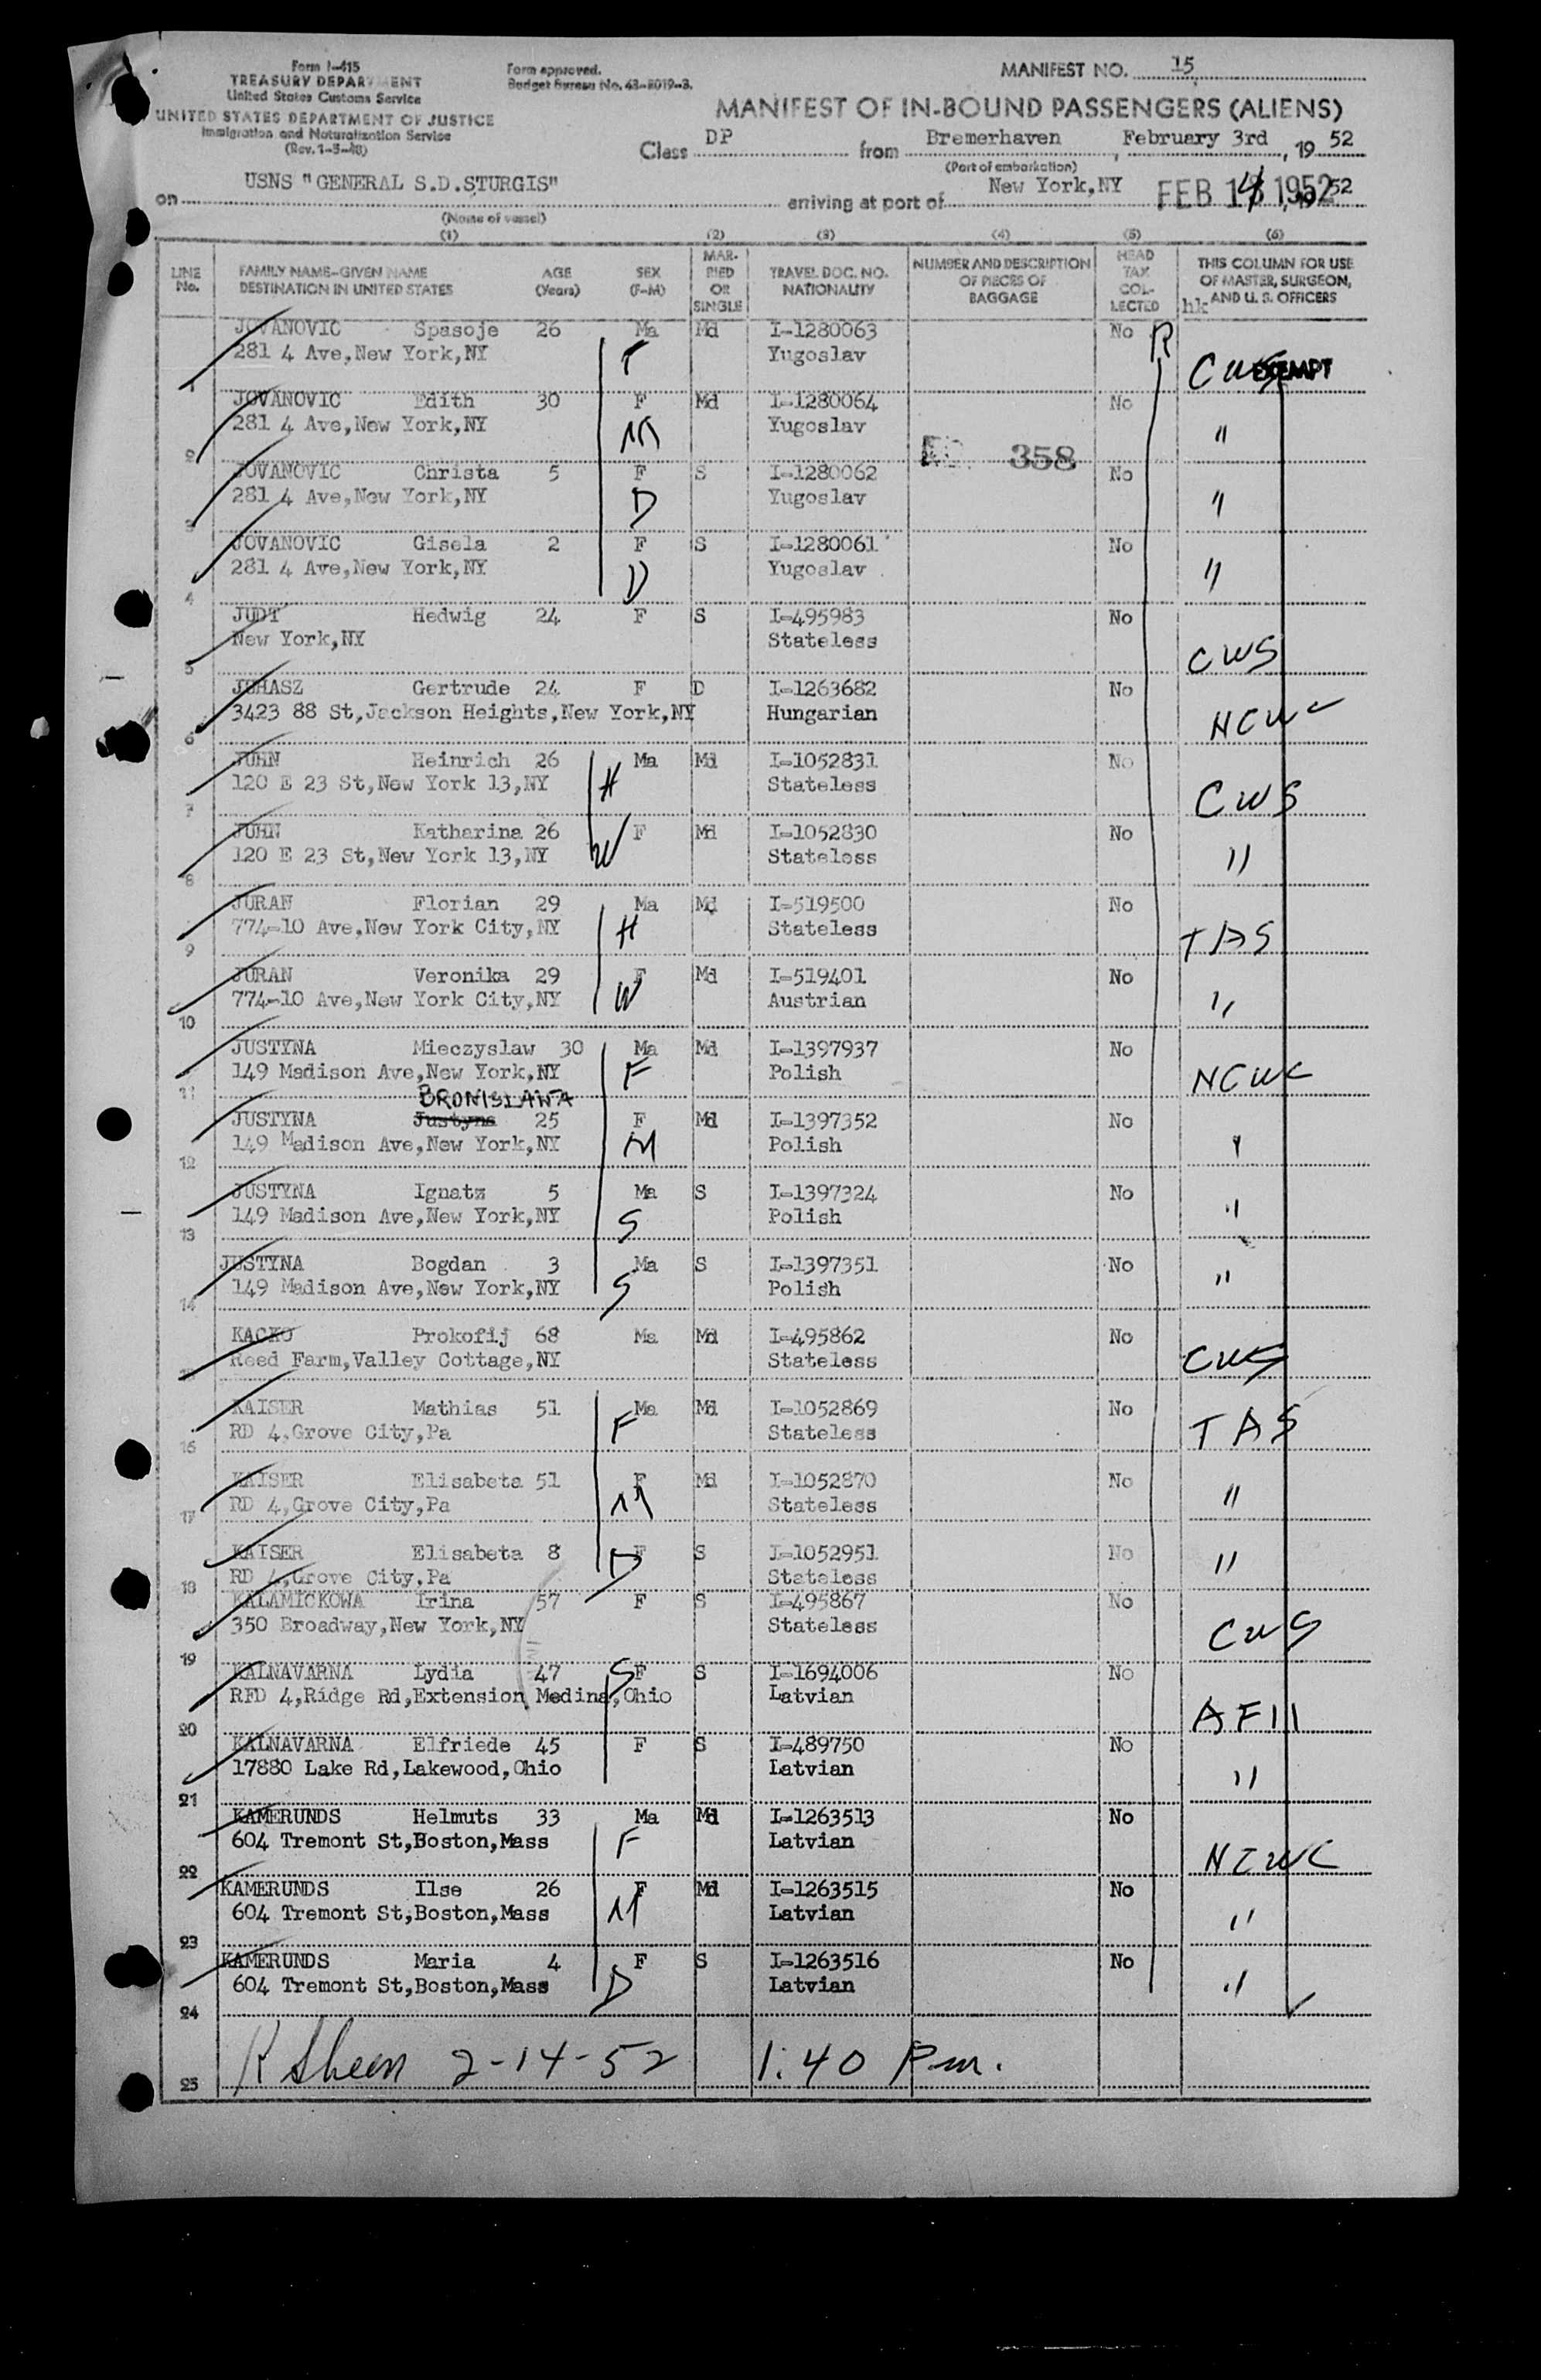 Form I-415
TREASURY DEPARTMENT
United States Customs Service
UNITED STATES DEPARTMENT OF JUSTICE
Immigration and Naturalization Service
(Rev. 1-5-48)
Form approved.
Budget Bureau No. 43-R019-3.
MANIFEST NO. 15
MANIFEST OF IN-BOUND PASSENGERS (ALIENS)
Class DP from Bremerhaven, February 3rd, 1952
(Port of embarkation)
on USNS "GENERAL S.D.STURGIS" arriving at port of New York,NY FEB 14 1952 52
(Name of vessel)
(1) (2) (3) (4) (5) (6)
LINE No. FAMILY NAME-GIVEN NAME DESTINATION IN UNITED STATES AGE (Years) SEX (F-M) MARRIED OR SINGLE TRAVEL DOC. NO. NATIONALITY NUMBER AND DESCRIPTION OF PIECES OF BAGGAGE HEAD TAX COLLECTED THIS COLUMN FOR USE OF MASTER, SURGEON, AND U. S. OFFICERS
hk
JOVANOVIC Spasoje 26 Ma Md I-1280063 No R
281 4 Ave,New York,NY Yugoslav CWS EXEMPT
1
JOVANOVIC Edith 30 F Md I-1280064 No
281 4 Ave,New York,NY M Yugoslav "
2 358
JOVANOVIC Christa 5 F S I-1280062 No
281 4 Ave,New York,NY D Yugoslav "
3
JOVANOVIC Gisela 2 F S I-1280061 No
281 4 Ave,New York,NY D Yugoslav "
4
JUDT Hedwig 24 F S I-495983 No
New York,NY Stateless CWS
5
JUHASZ Gertrude 24 F D I-1263682 No
3423 88 St,Jackson Heights,New York,NY Hungarian NCWC
6
JUHN Heinrich 26 Ma Md I-1052831 No
120 E 23 St,New York 13,NY H Stateless CWS
7
JUHN Katharina 26 F Md I-1052830 No
120 E 23 St,New York 13,NY W Stateless "
8
JURAN Florian 29 Ma Md I-519500 No
774-10 Ave,New York City,NY H Stateless TAS
9
JURAN Veronika 29 F Md I-519401 No
774-10 Ave,New York City,NY W Austrian "
10
JUSTYNA Mieczyslaw 30 Ma Md I-1397937 No
149 Madison Ave,New York,NY F Polish NCWC
11 BRONISLAWA
JUSTYNA Justyna 25 F Md I-1397352 No
149 Madison Ave,New York,NY M Polish "
12
JUSTYNA Ignatz 5 Ma S I-1397324 No
149 Madison Ave,New York,NY S Polish "
13
JUSTYNA Bogdan 3 Ma S I-1397351 No
149 Madison Ave,New York,NY S Polish "
14
KACKO Prokofij 68 Ma Md I-495862 No
Reed Farm,Valley Cottage,NY Stateless CWS
15
KAISER Mathias 51 Ma Md I-1052869 No
RD 4,Grove City,Pa F Stateless TAS
16
KAISER Elisabeta 51 F Md I-1052870 No
RD 4,Grove City,Pa M Stateless "
17
KAISER Elisabeta 8 F S I-1052951 No
RD 4,Grove City,Pa D Stateless "
18
KALAMICKOWA Irina 57 F S I-495867 No
350 Broadway,New York,NY Stateless CWS
19
KALNAVARNA Lydia 47 S F S I-1694006 No
RFD 4,Ridge Rd,Extension Medina,Ohio Latvian
20
KALNAVARNA Elfriede 45 F S I-489750 No
17880 Lake Rd,Lakewood,Ohio Latvian "
21
KAMERUNDS Helmuts 33 Ma Md I-1263513 No
604 Tremont St,Boston,Mass F Latvian NCWC
22
KAMERUNDS Ilse 26 F Md I-1263515 No
604 Tremont St,Boston,Mass M Latvian "
23
KAMERUNDS Maria 4 F S I-1263516 No
604 Tremont St,Boston,Mass D Latvian "
24
2-14-52 1:40 Pm.
25